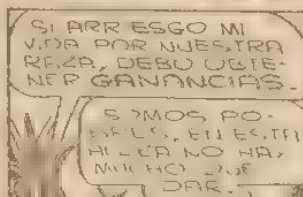 SI ARRIESGO MI
VIDA POR NUESTRA
RAZA, DEBO OBTE-
NER GANANCIAS.
SOMOS PO-
EN ESTA
NO HAY
MUCHO QUE
DAR.